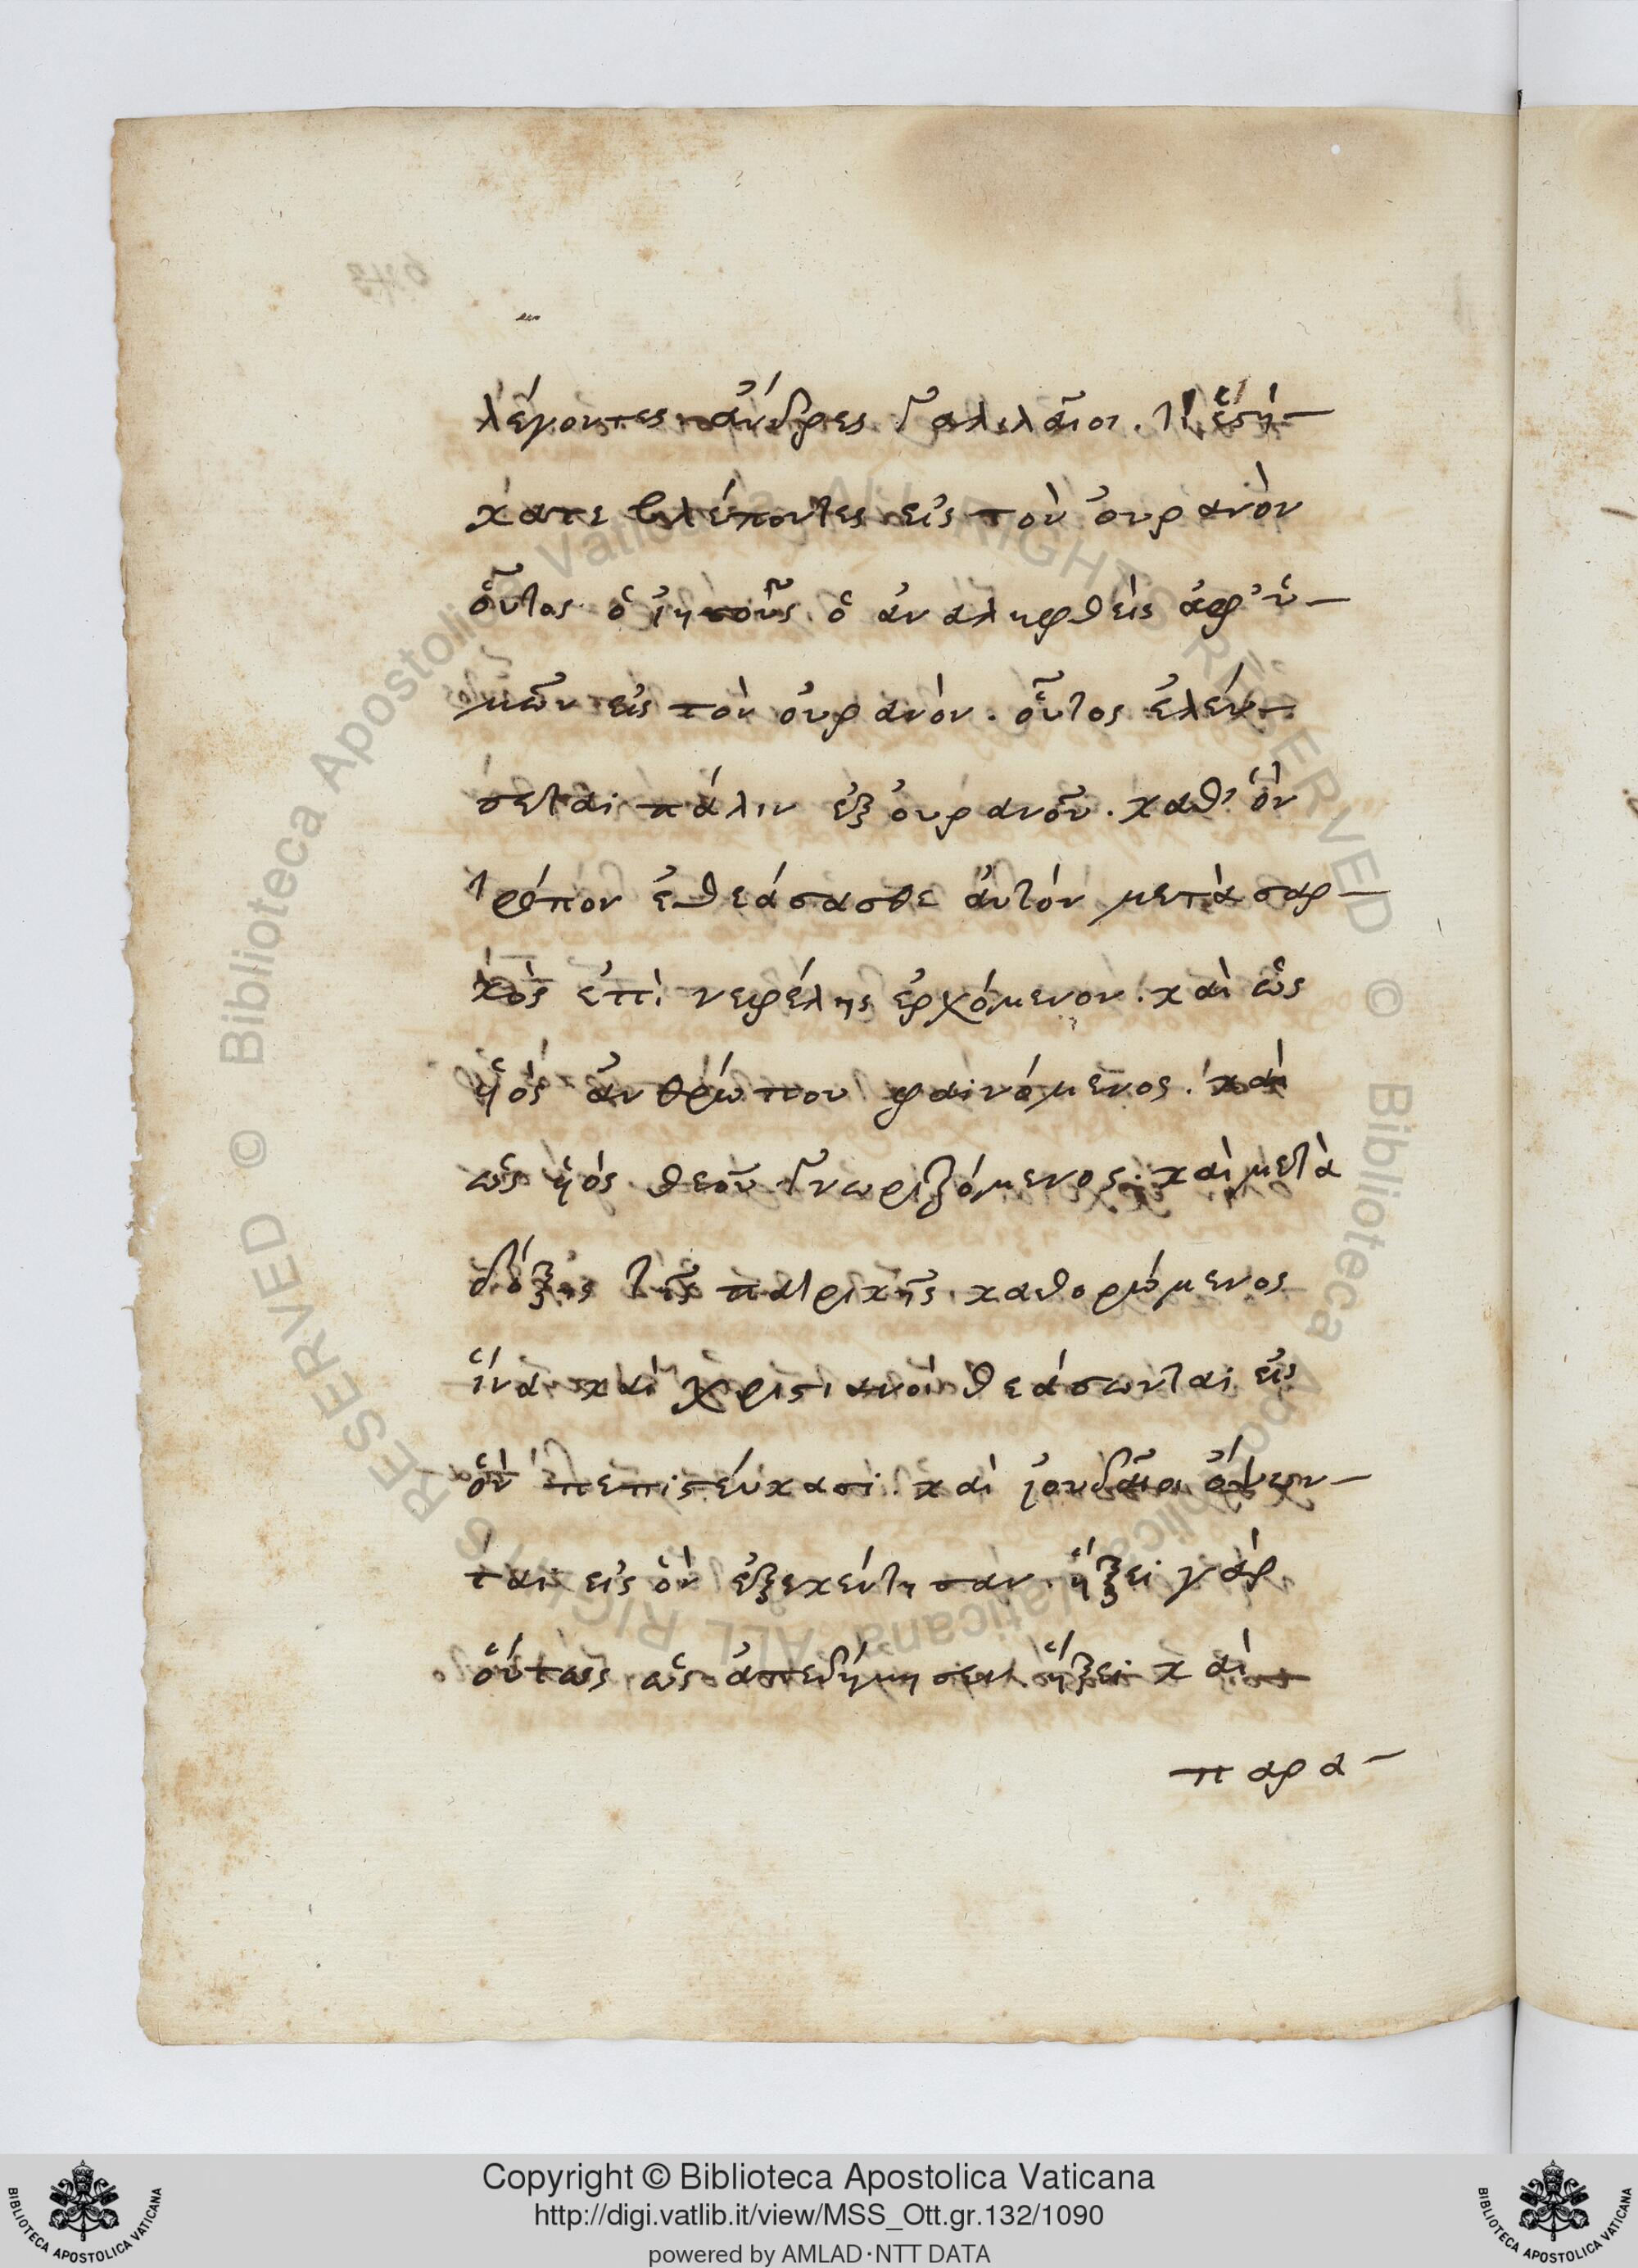 λέγοντες ἄνδρες Γαλιλαῖοι. τί ἑστή-
κατε βλέποντες εἰς τὸν οὐρανὸν
οὗτος ὁ ἰησοῦς ὁ ἀναληφθεὶς ἀφ' ὑ-
μῶν εἰς τὸν οὐρανὸν. οὗτος ἐλεύ-
σεται πάλιν ἐξ οὐρανοῦ. καθ' ὃν
τρόπον ἐθεάσασθε αὐτὸν μετὰ σαρ-
κὸς ἐπὶ νεφέλης ἐρχόμενον. καὶ ὡς
ὑὸς ἀνθρώπου φαινόμενος. καὶ
ὡς ὑὸς θεοῦ Γνωριζόμενος. καὶ μετὰ
δόξης τῆς πατρικῆς καθορώμενος
ἵνα καὶ χριστιανοὶ θεάσωνται εἰς
ὃν πεπιστεύκασι. καὶ ἰουδαῖοι ὄψων-
ται εἰς ὃν ἐξεκέντησαν. ἥξει γὰρ
οὕτως ὡς ἀπεδήμησεν ἥξει καὶ
παρα-
Copyright © Biblioteca Apostolica Vaticana
http://digi.vatlib.it/view/MSS_Ott.gr.132/1090
powered by AMLAD·NTT DATA
BIBLIOTECA APOSTOLICA VATICANA
BIBLIOTECA APOSTOLICA VATICANA
© Biblioteca Apostolica Vaticana ALL RIGHTS RESERVED
© Biblioteca Apostolica Vaticana ALL RIGHTS RESERVED